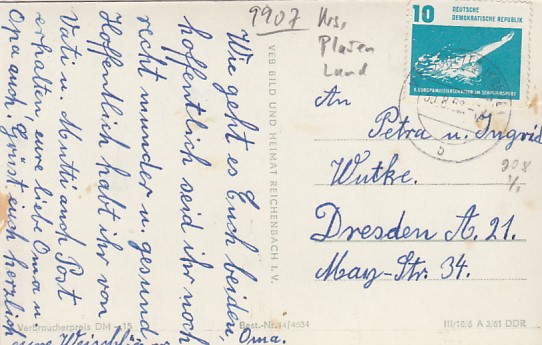 9907
Krs.
Plauen
Land
10 DEUTSCHE
DEMOKRATISCHE REPUBLIK
X. EUROPAMEISTERSCHAFTEN IM SCHWIMMSPORT
Wie geht es Euch beiden,
hoffentlich seid ihr noch
recht munder u. gesund.
Hoffentlich habt ihr von
Vati u. Mutti auch Post
erhalten, eure liebe Oma u.
Opa auch. Grüßt euch herzlich
eure
Oma.
VEB BILD UND HEIMAT REICHENBACH I. V.
An
Petra u. Ingrid
Wutke.
Dresden A. 21.
May-Str. 34.
b
Verbraucherpreis DM -,15
Best.-Nr. 14/4634
III/18/6 A 3/61 DDR